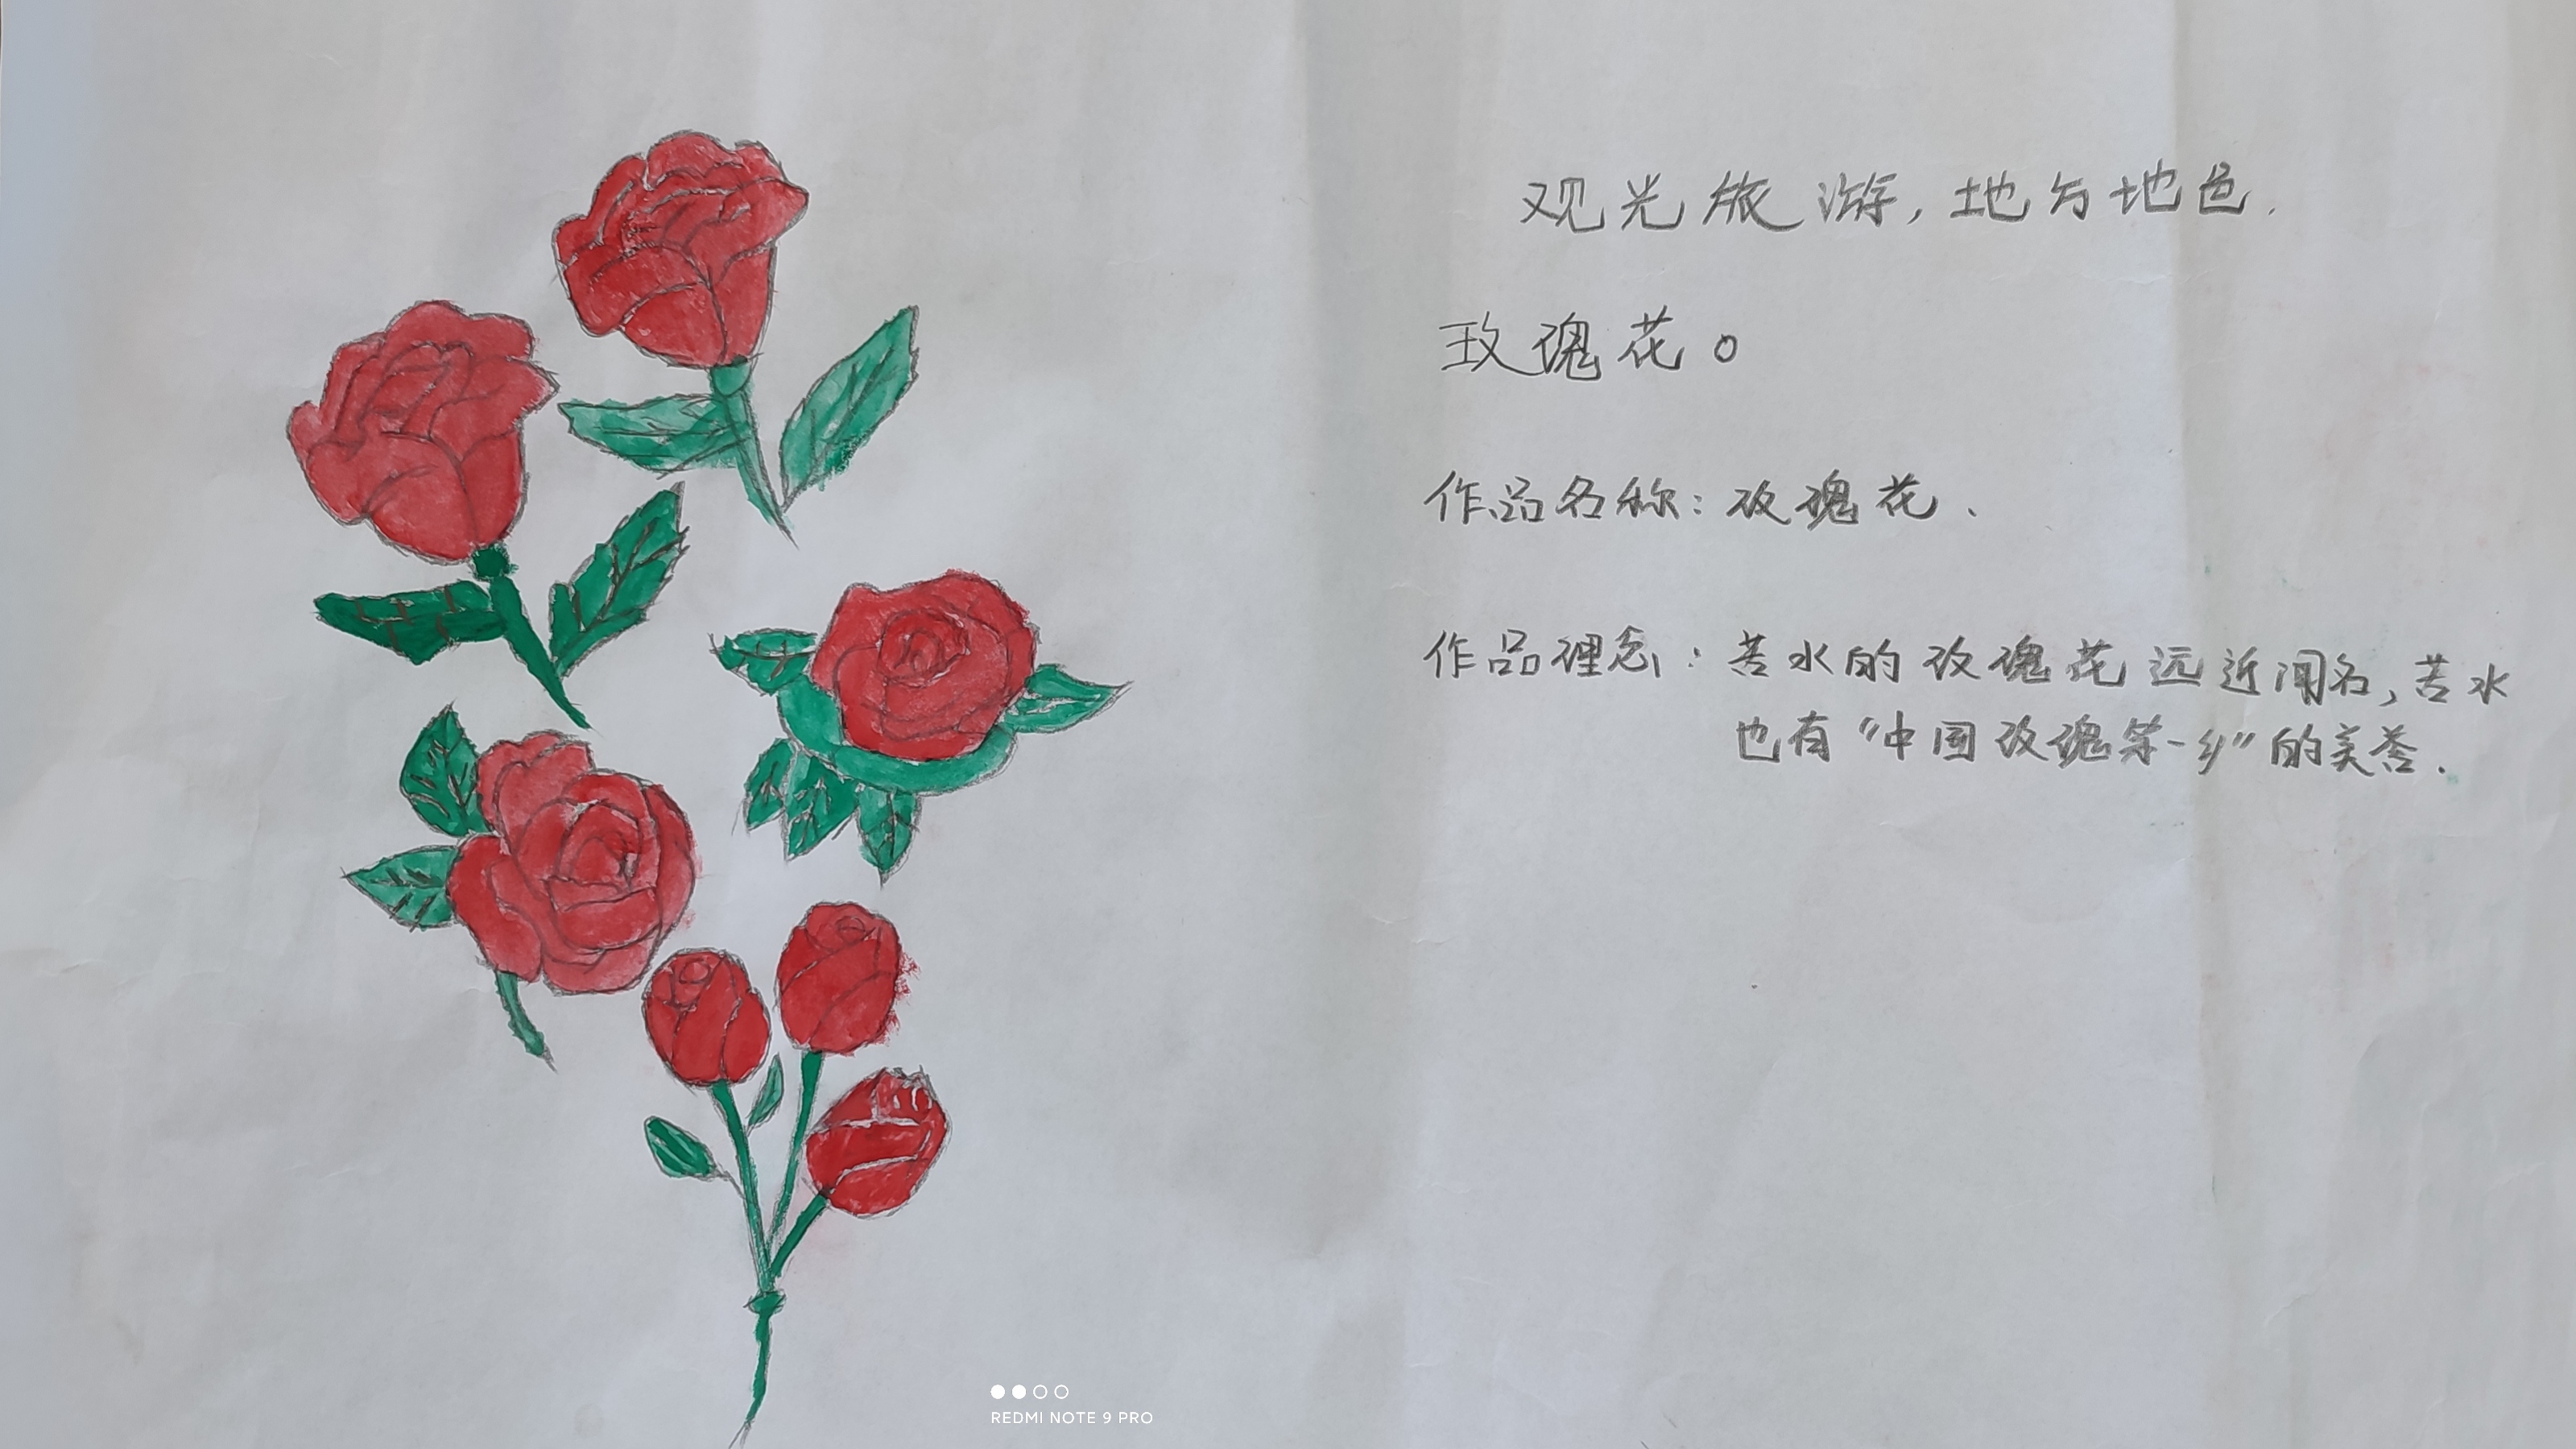 观光旅游，地方地色.
玫瑰花。
作品名称：玫瑰花.
作品理念：苦水的玫瑰花远近闻名，苦水
也有“中国玫瑰第一乡”的美誉.
REDMI NOTE 9 PRO